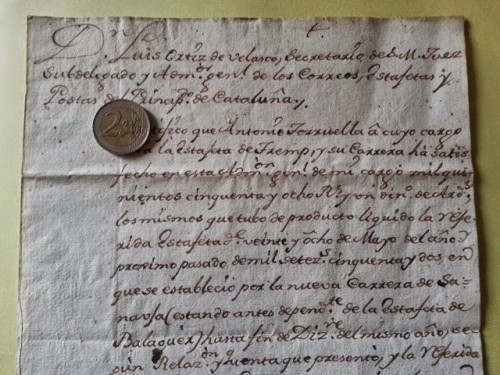 Dn. Luis Ortiz de Velasco, Secretario, de S. M. Juez
Subdelegado y Admor. genl. de los Correos, Estafetas y
Postas del Principdo. de Cataluña y.
fico que Antonio Torruella â cuyo cargo
la Estafeta de Tremp, y su Carrera há satis
fecho en esta Admon. genl. de mi cargo mil qui
nientos cinquenta y ocho Rs. y on dins. de
los mismos que tubo de producto liquido la refe
rida Estafeta de. veinte y ôcho de Mayo del año
proximo pasado de mil setezs. cinquenta y dos, en
que se estableció por la nueva Carrera de Sa
navja (estando antes depente. de la Estafeta de
Balaguer) hasta fin de Dizre. del mismo año, se
gun Relazon. y Quenta que presentó, y la referida
2